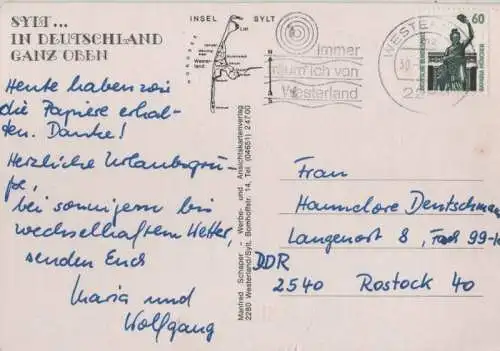 SYLT...
IN DEUTSCHLAND
GANZ OBEN
Heute haben wir
die Papiere erhal-
ten. Danke!
Herzliche Urlaubsgrü-
ße,
bei sonnigem bis
wechselhaftem Wetter,
senden Euch
Maria und
Wolfgang
INSEL SYLT
NORDSEE
List
Wester-
land
Manfred Schaper - Werbe- und Ansichtskartenverlag
2280 Westerland/Sylt, Bomhoffstr. 14, Tel. (04651) 2 47 00
Immer
träum ich von
Westerland
WESTE
60
DEUTSCHE BUNDESPOST
BAVARIA MÜNCHEN
Frau
Hannelore Deutschman
Langenort 8, Fach 99-10
DDR
2540 Rostock 40